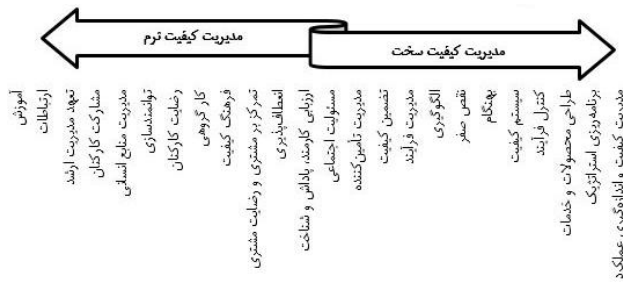 مدیریت کیفیت نرم
مدیریت کیفیت سخت
مدیریت کیفیت و اندازه‌گیری عملکرد
برنامه‌ریزی استراتژیک
طراحی محصولات و خدمات
کنترل فرآیند
سیستم کیفیت
بهنگام
نقص صفر
الگوگیری
مدیریت فرآیند
تضمین کیفیت
مدیریت تأمین‌کننده
مسئولیت اجتماعی
ارزیابی کارمند، پاداش و شناخت
انعطاف‌پذیری
تمرکز بر مشتری و رضایت مشتری
فرهنگ کیفیت
کار گروهی
رضایت کارکنان
توانمندسازی
مدیریت منابع انسانی
مشارکت کارکنان
تعهد مدیریت ارشد
ارتباطات
آموزش